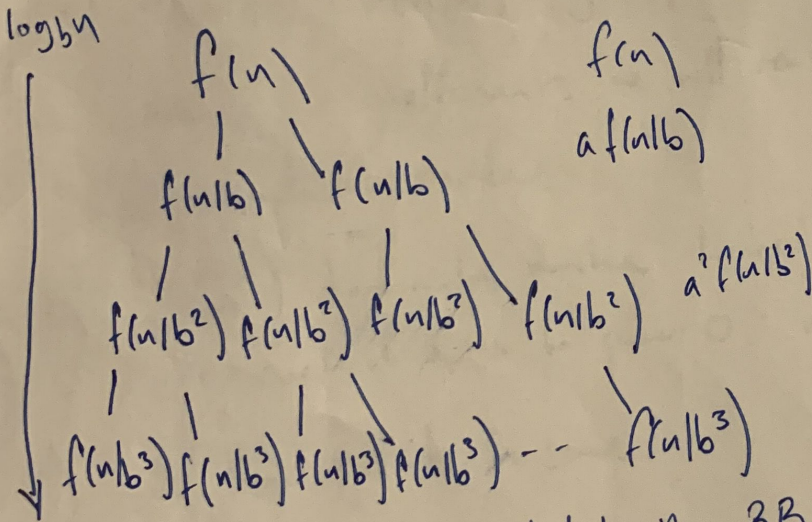 log_b n
f(n) f(n)
a f(n/b)
f(n/b) f(n/b)
a² f(n/b²)
f(n/b²) f(n/b²) f(n/b²) f(n/b²)
f(n/b³) f(n/b³) f(n/b³) f(n/b³) -- f(n/b³)